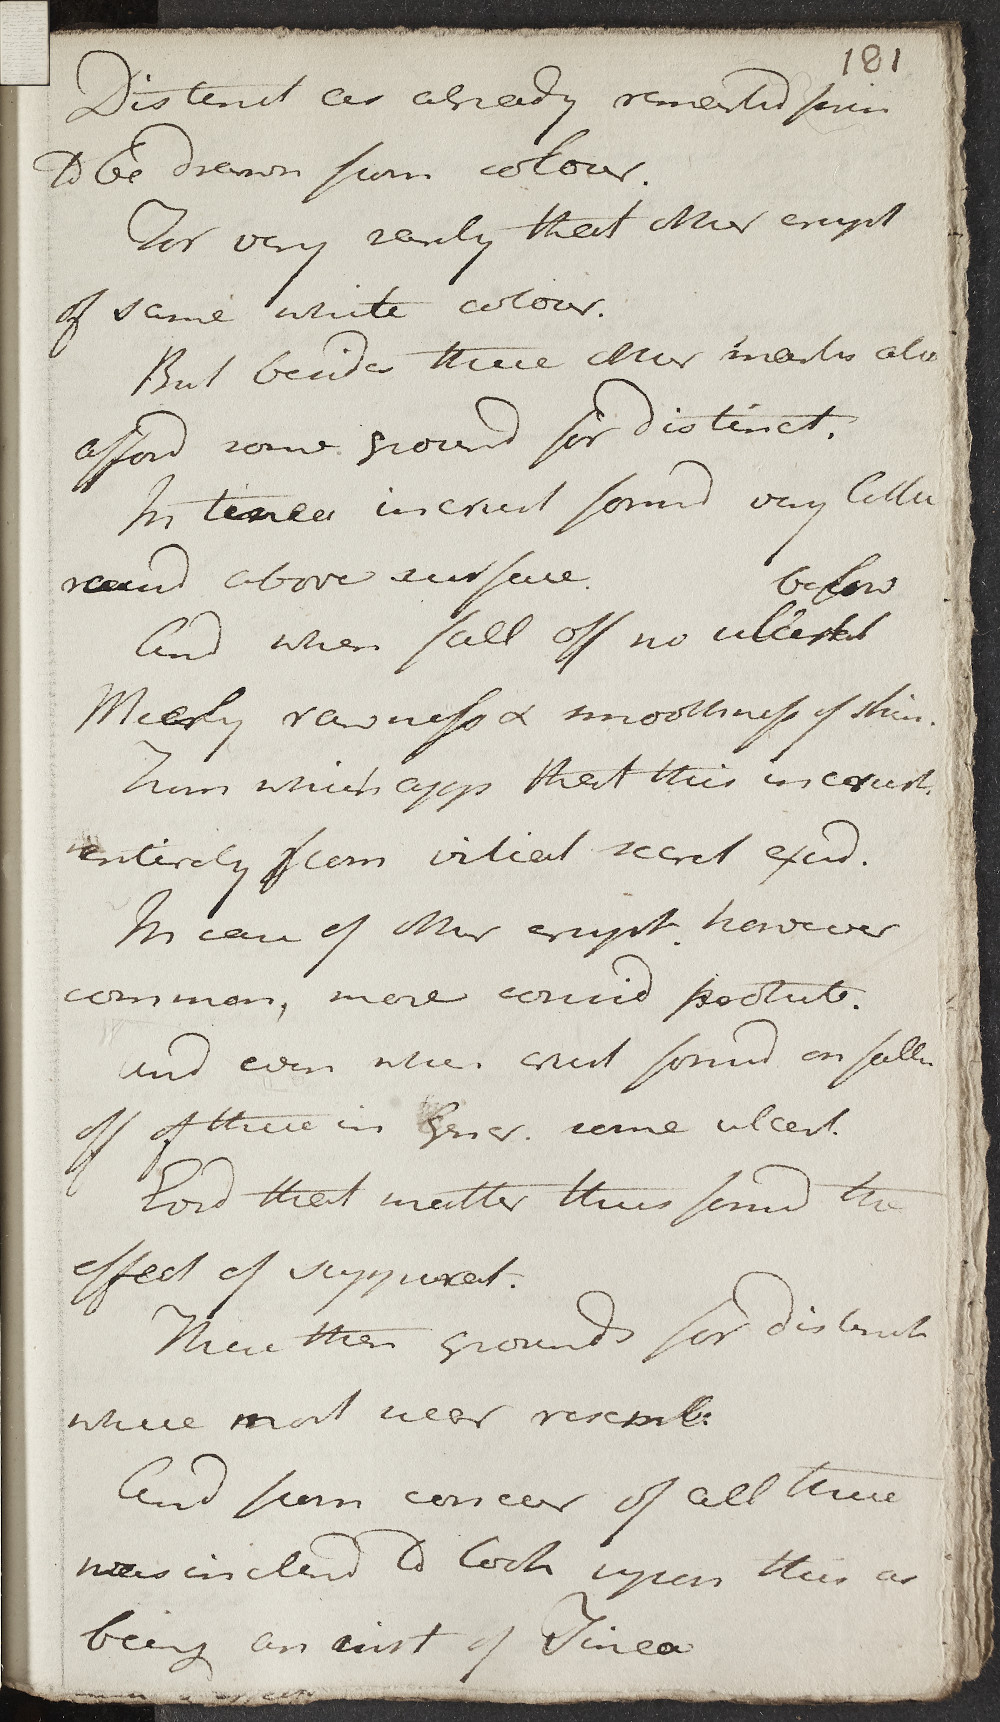 181
Distinct as already remarked prin
to be drawn from colour.
For very rarely that other erupt
of same white colour.
But besides these other marks also
afford some ground for distinct.
In tinea incrust formd very little
raisd above surface.
below
And when fall off no ulcerat
Meerly rawness & smoothness of skin.
From which apps that this incrust.
entirely from vitiat secret exud.
In case of other erupt. however
common, more considd
and even when crust formd on fallg
off of these in gener. some ulcerat.
And that matter thus formd the
effect of suppurat.
These then grounds for distinct
where most near resemb:
And from concur of all these
was inclend to look upon this as
being an inst of Tinea